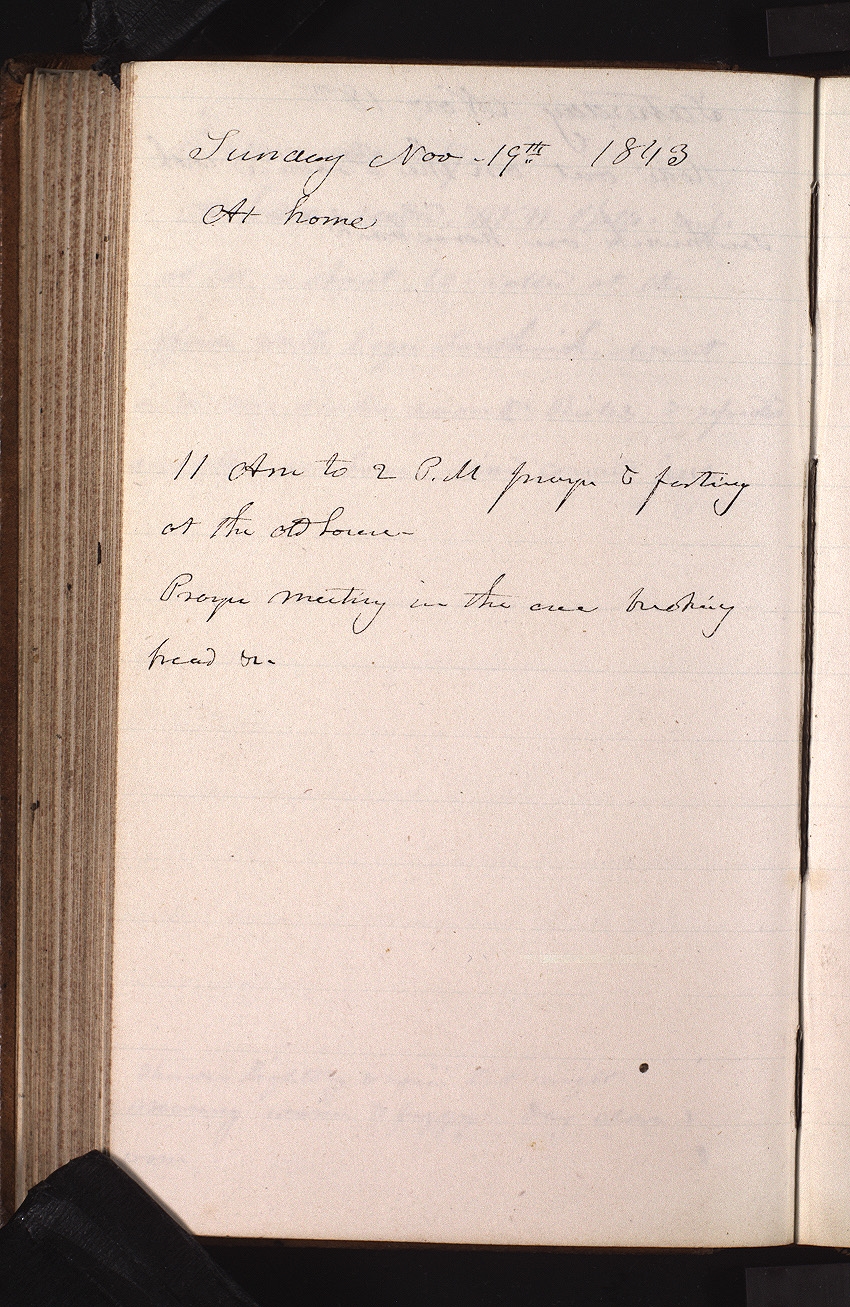 Sunday Nov - 19th 1843
At home
11 Am to 2 P.M prayer & fasting
at the old house -
Prayer meeting in the eve breaking
bread &c -